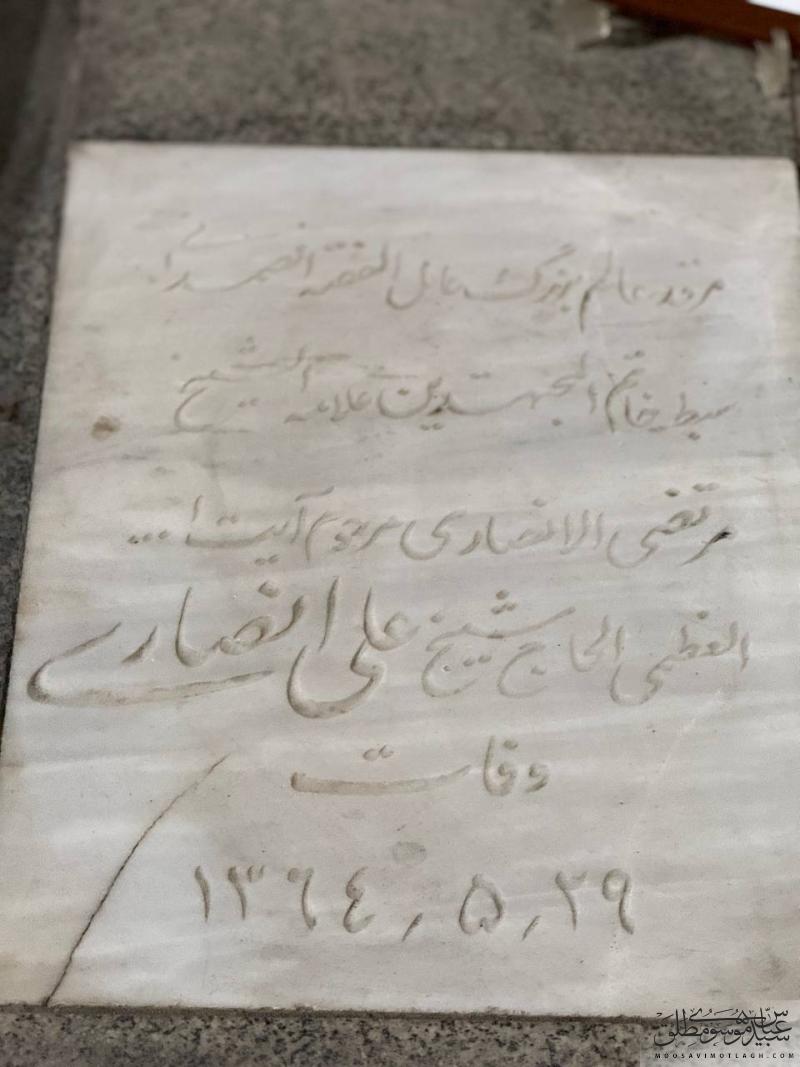 مرقد عالم بزرگ عامل الفقیه الصمدانی
سبط خاتم المجتهدین علامه الشیخ
مرتضی الانصاری مرحوم آیت ا...
العظمی الحاج شیخ علی انصاری
وفات
۱۳۶۴٫۵٫۲۹
سید عباس موسوی مطلق
MOOSAVIMOTLAGH.COM